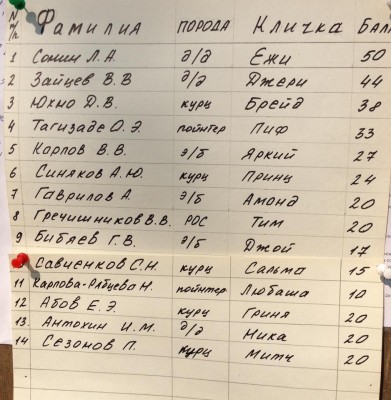 N п/п Фамилия ПОРОДА Кличка БАЛ
1 Сонин Л.А. д/д Ежи 50
2 Зайцев В.В д/д Джери 44
3 Юхно Д.В. курц Брейд 38
4 Тагизаде О.Э. пойнтер Пиф 33
5 Карпов В.В. э/б Яркий 27
6 Синяков А.Ю. курц Принц 24
7 Гаврилов А. э/б Амонд 20
8 Гречишников В.В. РОС Тим 20
9 Бибяев Г.В. э/б Джой 17
Савченков С.Н. курц Сальма 15
11 Карпова-Рябцева Н. пойнтер Любаша 10
12 Абов Е.Э. курц Гриня 20
13. Антохин И.М. д/д Ника 20
14 Сезонов П. курц Митч 20